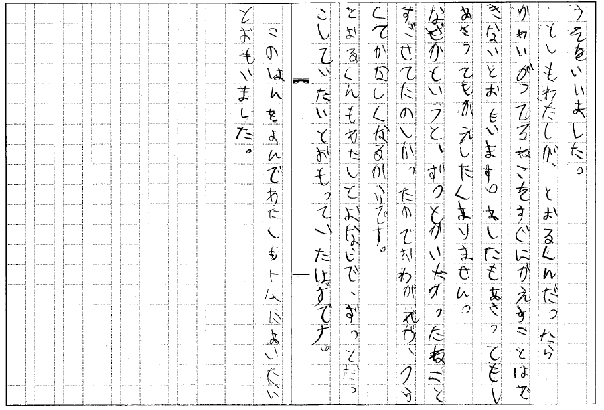 うそをいいました。
もしもわたしが、とおるくんだったら
かわいがってるねこをすぐにかえすことはで
きないとおもいます。あしたもあさってもし
あさってもかえしたくありません。
なぜかというと、ずっとかいたかったねこと
すごせてたのしかったのでおわかれが、つら
くてかなしくなるからです。
とおるくんもわたしとおなじで、ずっと
こしていたいとおもっていたはずです。
このほんをよんでわたしも
とおもいました。